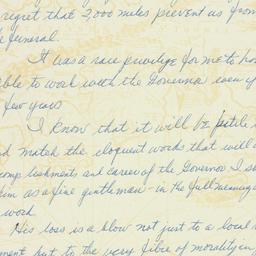 regret that 3,000 miles prevent us from
funeral.
It was a rare privilege for me to
to work with the Governor even
few years
I know that it will be
match the eloquent words that will
and career of the Governor I
him as a fine gentleman - in the full meaning
word.
His loss is a blow not just to a local
but to the very fibre of morality in